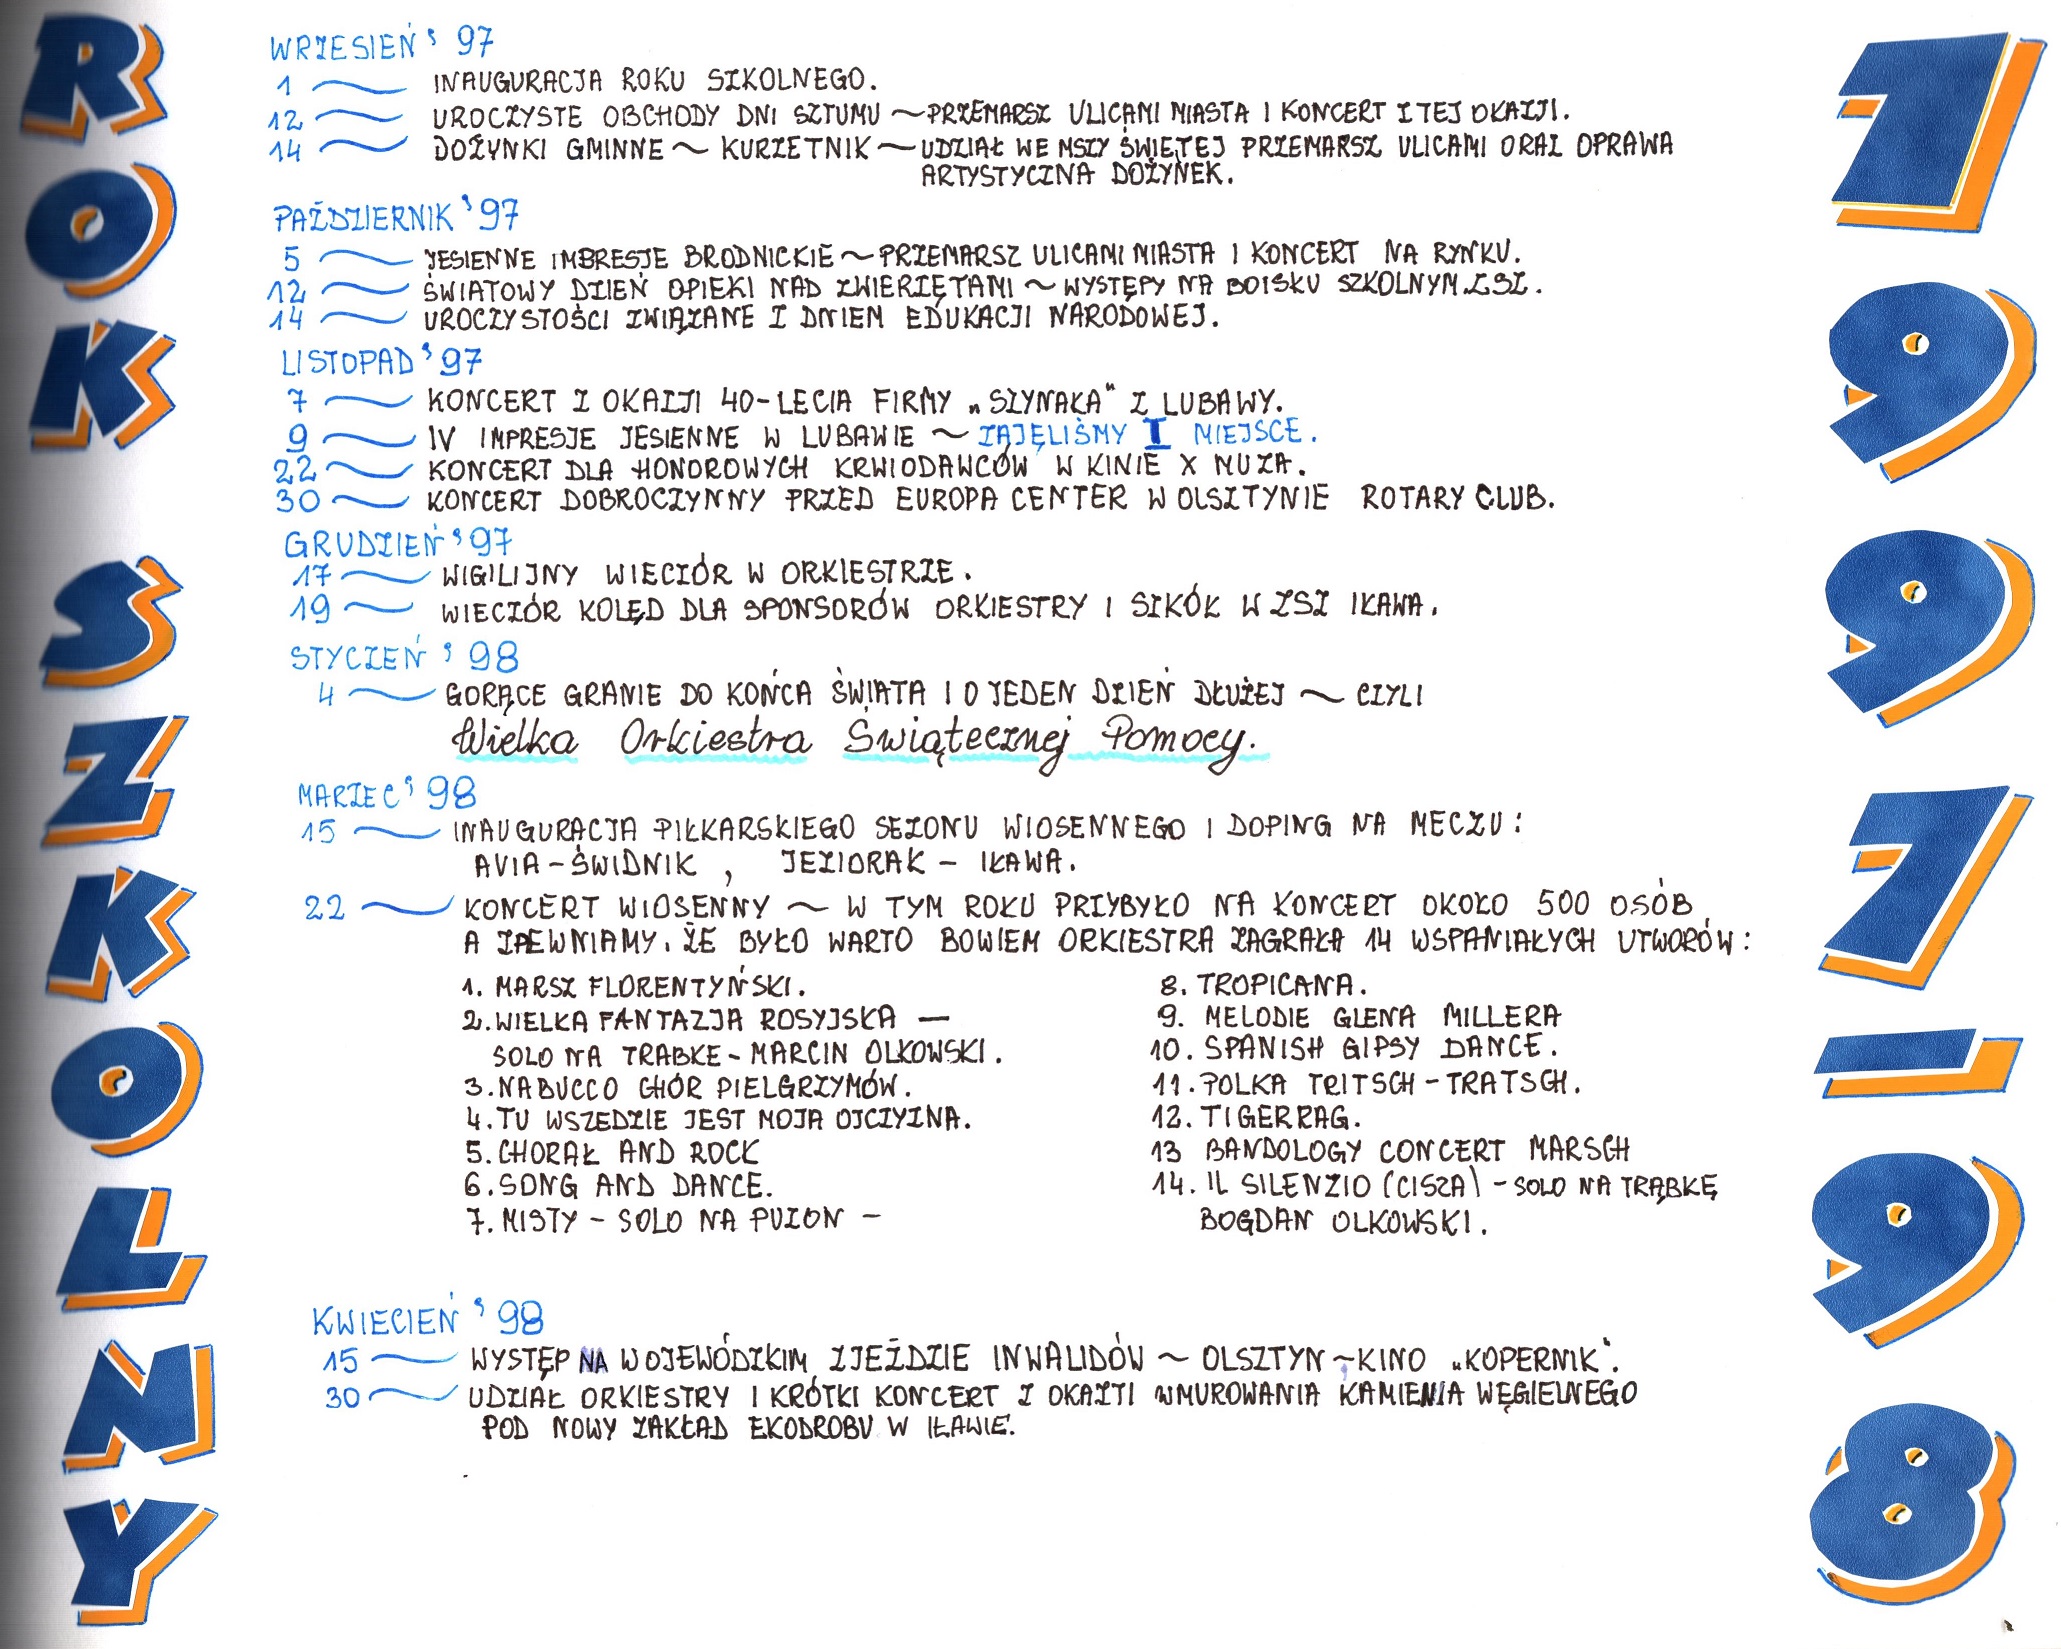 ROK SZKOLNY
1997-98
WRZESIEŃ '97
1 ~ INAUGURACJA ROKU SZKOLNEGO.
12 ~ UROCZYSTE OBCHODY DNI SZTUMU ~ PRZEMARSZ ULICAMI MIASTA I KONCERT Z TEJ OKAZJI.
14 ~ DOŻYNKI GMINNE ~ KURZETNIK ~ UDZIAŁ WE MSZY ŚWIĘTEJ PRZEMARSZ ULICAMI ORAZ OPRAWA
ARTYSTYCZNA DOŻYNEK.
PAŹDZIERNIK '97
5 ~ JESIENNE IMBRESJE BRODNICKIE ~ PRZEMARSZ ULICAMI MIASTA I KONCERT NA RYNKU.
12 ~ ŚWIATOWY DZIEŃ OPIEKI NAD ZWIERZĘTAMI ~ WYSTĘPY NA BOISKU SZKOLNYM ZSZ.
14 ~ UROCZYSTOŚCI ZWIĄZANE Z DNIEM EDUKACJI NARODOWEJ.
LISTOPAD '97
7 ~ KONCERT Z OKAZJI 40-LECIA FIRMY „SZYNAKA" Z LUBAWY.
9 ~ IV IMPRESJE JESIENNE W LUBAWIE ~ ZAJĘLIŚMY I MIEJSCE.
22 ~ KONCERT DLA HONOROWYCH KRWIODAWCÓW W KINIE X MUZA.
30 ~ KONCERT DOBROCZYNNY PRZED EUROPA CENTER W OLSZTYNIE ROTARY CLUB.
GRUDZIEŃ '97
17 ~ WIGILIJNY WIECZÓR W ORKIESTRZE.
19 ~ WIECZÓR KOLĘD DLA SPONSORÓW ORKIESTRY I SZKÓŁ W ZSZ IŁAWA.
STYCZEŃ '98
4 ~ GORĄCE GRANIE DO KOŃCA ŚWIATA I O JEDEN DZIEŃ DŁUŻEJ ~ CZYLI
Wielka Orkiestra Świątecznej Pomocy.
MARZEC '98
15 ~ INAUGURACJA PIŁKARSKIEGO SEZONU WIOSENNEGO I DOPING NA MECZU:
AVIA-ŚWIDNIK , JEZIORAK - IŁAWA.
22 ~ KONCERT WIOSENNY ~ W TYM ROKU PRZYBYŁO NA KONCERT OKOŁO 500 OSÓB,
A ZPEWNIAMY, ŻE BYŁO WARTO BOWIEM ORKIESTRA ZAGRAŁA 14 WSPANIAŁYCH UTWORÓW:
1. MARSZ FLORENTYŃSKI.
2. WIELKA FANTAZJA ROSYJSKA —
SOLO NA TRABKE - MARCIN OLKOWSKI.
3. NABUCCO CHÓR PIELGRZYMÓW.
4. TU WSZEDZIE JEST MOJA OJCZYZNA.
5. CHORAŁ AND ROCK
6. SONG AND DANCE.
7. MISTY - SOLO NA PUZON -
8. TROPICANA.
9. MELODIE GLENA MILLERA
10. SPANISH GIPSY DANCE.
11. POLKA TRITSCH-TRATSCH.
12. TIGERRAG.
13 BANDOLOGY CONCERT MARSCH
14. IL SILENZIO (CISZA) - SOLO NA TRĄBKĘ
BOGDAN OLKOWSKI.
KWIECIEŃ '98
15 ~ WYSTĘP NA WOJEWÓDZKIM ZJEŹDZIE INWALIDÓW ~ OLSZTYN ~ KINO „KOPERNIK".
30 ~ UDZIAŁ ORKIESTRY I KRÓTKI KONCERT Z OKAZJI WMUROWANIA KAMIENIA WĘGIELNEGO
POD NOWY ZAKŁAD EKODROBU W IŁAWIE.